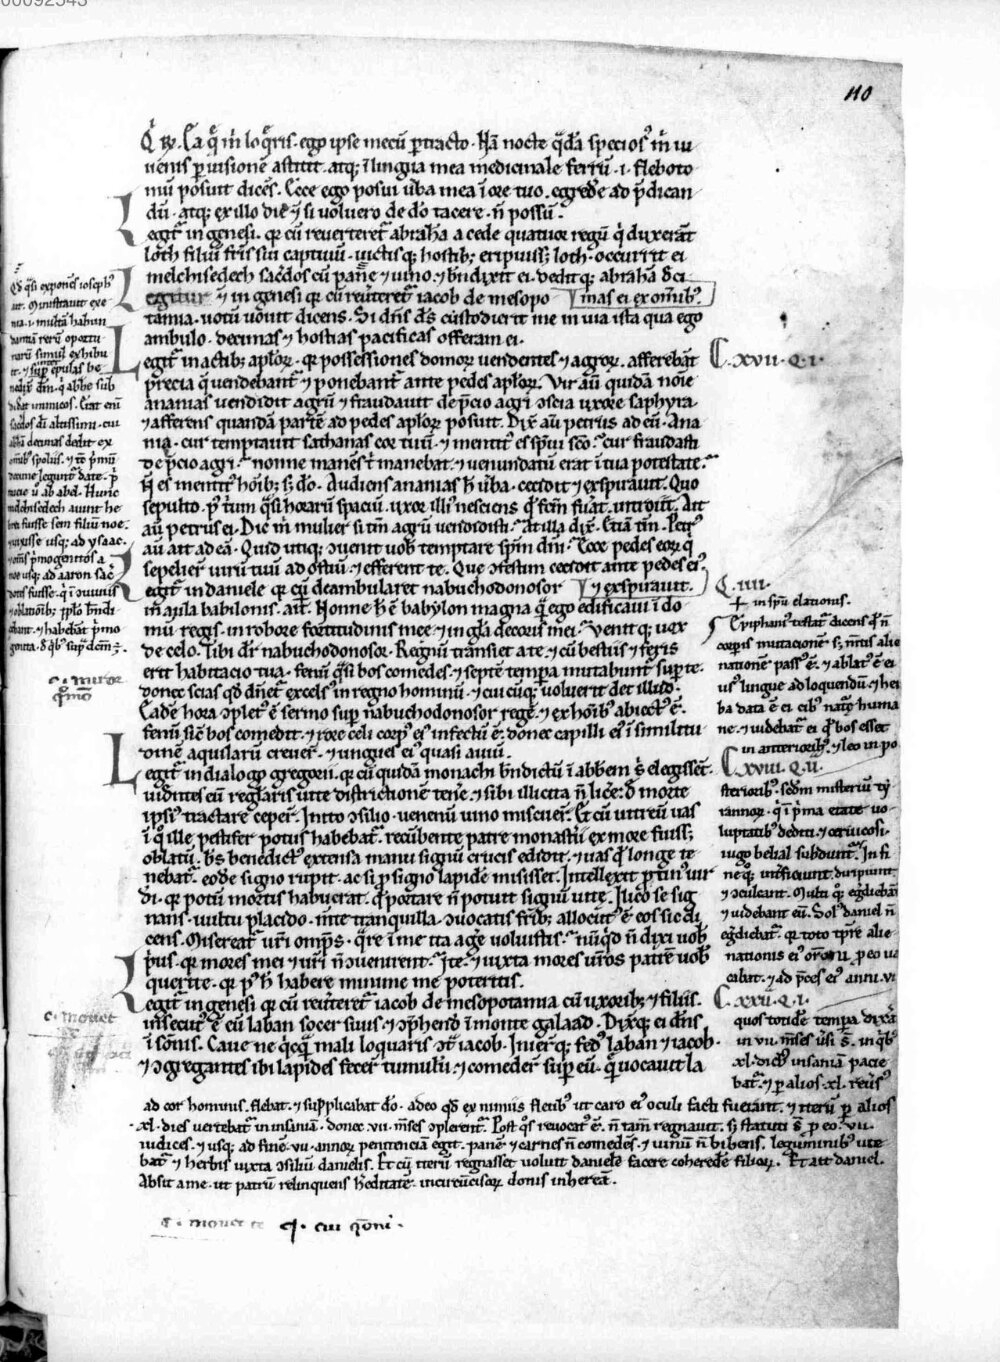 110
Q̄ R̄. Ea q̄ m̄ loq̄ris. ego ipse mecū ꝑtracto. Hāc nocte q̄dā specios᾽ m̄ iu
uenis ꝑ uisionē astitit. atq; ī lingua mea medicinale ferrū .i. fleboto
mū posuit dicēs. Ecce ego posui ūba mea ī ore tuo. egrede ad p̄dican
dū. atq; ex illo die ⁊ si voluero de do tacere. n̄ possū.
Legit̄ in genesi. qꝛ cū reverteret̄ abrahā a cede quatuor regū q̄ duxerāt
loth filiū fr̄is sui captiuū. uictisq; hostib; eripuiss; loth. occurrit ei
melchisedech sac̄dos cū pane ⁊ uino. ⁊ bn̄dixit ei. dedit q; abrahā deci
mas ei ex om̄ib᾽.
Legitur ⁊ in genesi qꝛ cū reūteret̄ iacob de mesopo
tamia. uotū vouit dicens. Si dn̄s ds̄ custodierit me in uia ista qua ego
ambulo. decimas ⁊ hostias pacificas offeram ei.
Legit̄ in actib; aplōꝝ. qꝛ possessiones domoꝝ vendentes ⁊ agroꝝ. afferebāt
precia q̄ vendebant̄ ⁊ ponebant̄ ante pedes aplōꝝ. Vir aū quidā noīe
ananias vendidit agrū ⁊ fraudauit de p̄cio agri ↄscia uxore saphyra
⁊ afferens quandā partē ad pedes aplōꝝ posuit. Dix̄ aū petrus ad eū. Ana
nia. cur temptauit sathanas cor tuū. ⁊ mentit᾽ es sp̄ui sc̄o. ⁊ cur fraudasti
de p̄cio agri. nonne manēs t̄ manebat. ⁊ uenundatū erat ī tua potestate.
N̄ es mentit᾽ hōib; s; do. Audiens ananias h̄ ūba. cecidit ⁊ exspirauit. Quo
sepulto. p᾽ t̄um q̄si horarū spaciū. uxor illi᾽ nesciens q̄ fc̄m fūat. introiuit. Ait
aū petrus ei. Dic m̄ mulier si tm̄ agrū vendidisti. At illa dix̄. Etiā tm̄. Petr᾽
aū ait ad eā. Quid utiq; ↄuenit uob temptare sp̄m dn̄i. Ecce pedes eoꝝ q̄
sepelier̄ uirū tuū ad ostiū ⁊ efferent te. Que ↄfestim cecidit ante pedes ei᾽
⁊ exspirauit.
Legit̄ in daniele qꝛ cū deambularet nabuchodonosor
in aula babilonis. ait. Nonne h̄ ē babylon magna q̄ ego edificaui ī do
mū regis. in robore fortitudinis mee ⁊ in gl̄a decoris mei. Venit q; uox
de celo. Tibi dr̄ nabuchodonosor. Regnū transiet a te. ⁊ cū bestiis ⁊ feris
erit habitacio tua. fenū q̄si bos comedes. ⁊ septē tempa mutabunt̄ supꝛ te.
donec scias qd̄ dn̄et̄ excels᾽ in regno hominū. ⁊ cuicūq; voluerit det illud.
Eadē hora ↄplet᾽ ē sermo sup nabuchodonosor regē. ⁊ ex hōib᾽ abiect᾽ ē.
fenū sic̄ bos comedit. ⁊ rore celi corp᾽ ei᾽ infectū ē. donec capilli ei᾽ ī similitu
dinē aquilarū creuer̄. ⁊ ungues ei᾽ quasi auiū.
Legit̄ in dialogo gregorii. qꝛ cū quidā monachi bn̄dictū ī abbem s̄ elegissēt.
uidentes eū reglaris uite districtionē tene. ⁊ sibi illicita n̄ lice. d̄ morte
ipsi᾽ tractare ceper̄. Inito ↄsilio. venenū vino miscuer̄. Et cū uitreū uas
ī q᾽ ille pestifer potus habebat̄. recūbente patre monasti᾽ ex more fuiss;
oblatū. bs̄ benedict᾽ extensa manu signū crucis edidit. ⁊ uas q᾽ longe te
nebat̄. eodē signo rupit. ac si ꝑ signo lapidē misisset. Intellexit ꝓtin᾽ uir
di. qꝛ potū mortis habuerat. q᾽ portare n̄ potuit signū uite. Ilico se sig
nans. uultu placido. mte tranquilla. ↄuocatis fr̄ib; allocut᾽ ē eos sic di
cens. Misereat̄ ur̄i omp̄s. q̄re ī me ita age voluistis. nūqd̄ n̄ dixi uob
p̄us. qꝛ mores mei ⁊ ur̄i n̄ ↄuenirent. Ite. ⁊ iuxta mores ur̄os patrē uob
querite. qꝛ p᾽ h̄ habere minime me poteritis.
Legit̄ in genesi qꝛ cū reūteret̄ iacob de mesopotamia cū uxorib; ⁊ filiis.
insecut᾽ ē eū laban socer suus. ⁊ ↄp̄hend̄ ī monte galaad. Dixq; ei dn̄s
ī sōnis. Caue ne q̄cq̄ mali loquaris ↄt̄ iacob. Inierq; fed᾽ laban ⁊ iacob.
⁊ ↄgregantes ibi lapides fecer̄ tumulū. ⁊ comeder̄ sup eū. q̄ uocauit la
Qd̄ q̄si exponēs ioseph᾽
ait. Ministrauit exe
nia .i. multā habun
dantiā rerū oportu
narū simul exhibu
it. ⁊ sup epulas be
nedix̄ dm̄. q̄ abhe sub
didat inimicos. Erat enī
sac̄dos di altissimi. cui
abhā decimas dedit ex
om̄ib᾽ spoliis. ⁊ te p̄mū
decime legunt̄ date. p̄
micie u̅ ab abel. Hunc
melchisedech aiunt he
brei fuisse sem filiū noe.
⁊ uixisse usq; ad ysaac.
⁊ om̄s p̄mogenitos a
noe usq; ad aaron sac̄
dotes fuisse. q̄ ī ↄuiuiis
⁊ oblationib; ppl̄o bn̄di
cebant. ⁊ habebāt p̄mo
genita. d̄ q᾽b᾽ sup᾽ dcm̄ ē.
c. miror
q̄mō
c. mouet
C. xvii. q. i.
C. iiii.
in sp̄u elationis.
Epiphani᾽ testat̄ dicens q᾽ n̄
corpis mutacionē s; m̄tis alie
nationē pass᾽ ē. ⁊ ablat᾽ ē ei
us᾽ lingue ad loquendū. ⁊ her
ba data ē ei cib᾽ nat̄e huma
ne. ⁊ uidebat̄ ei q᾽ bos esset
in anteriorib᾽. ⁊ leo in po
C. xviii. q. ii.
steriorib᾽. scdm̄ misteriū ty
rannoꝝ. q᾽ ī p̄ma etate uo
luptatib᾽ dediti. ⁊ ceruicosi.
iugo belial subdunt̄. In fi
ne q; int̄ficiunt. diripiunt.
⁊ ↄculcant. Multi q; eg̅diebāt̄
⁊ uidebant eū. Sol᾽ daniel n̄
eg̅diebat̄. qꝛ toto tpr̄e alie
nationis ei᾽ orōni ꝑ eo ua
cabat. ⁊ ad p̄ces ei᾽ anni .vii.
C. xxii. q. i.
quos totidē tempa dixā
in vii. mēses ūsi s̄. in q᾽b᾽
xl. dieb᾽ insaniā pacie
bat̄. ⁊ ꝑ alios .xl. reūs᾽
ad cor hominis. flebat. ⁊ supplicabat do. adeo qd̄ ex nimiis fletib᾽ ut caro ei᾽ oculi facti fuerant. ⁊ iterū ꝑ alios
.xl. dies vertebat̄ in insaniā. donec .vii. mēses ↄplerent̄. Post q᾽s reuocat᾽ ē. n̄ tam̄ regnauit. s; statuti s̄ ꝑ eo .vii.
iudices. ⁊ usq; ad finē .vii. annoꝝ penitenciā egit. panē ⁊ carnes n̄ comedēs. ⁊ uinū n̄ bibens. leguminib᾽ ute
bat̄ ⁊ herbis iuxta ↄsiliū danielis. Et cū iterū regnasset voluit danielē facere coheredē filioꝝ. Et ait daniel.
Absit a me. ut patrū relinquens h̄editatē. incircūcisoꝝ donis inheream.
c. mouet te q. cui q̄oni.